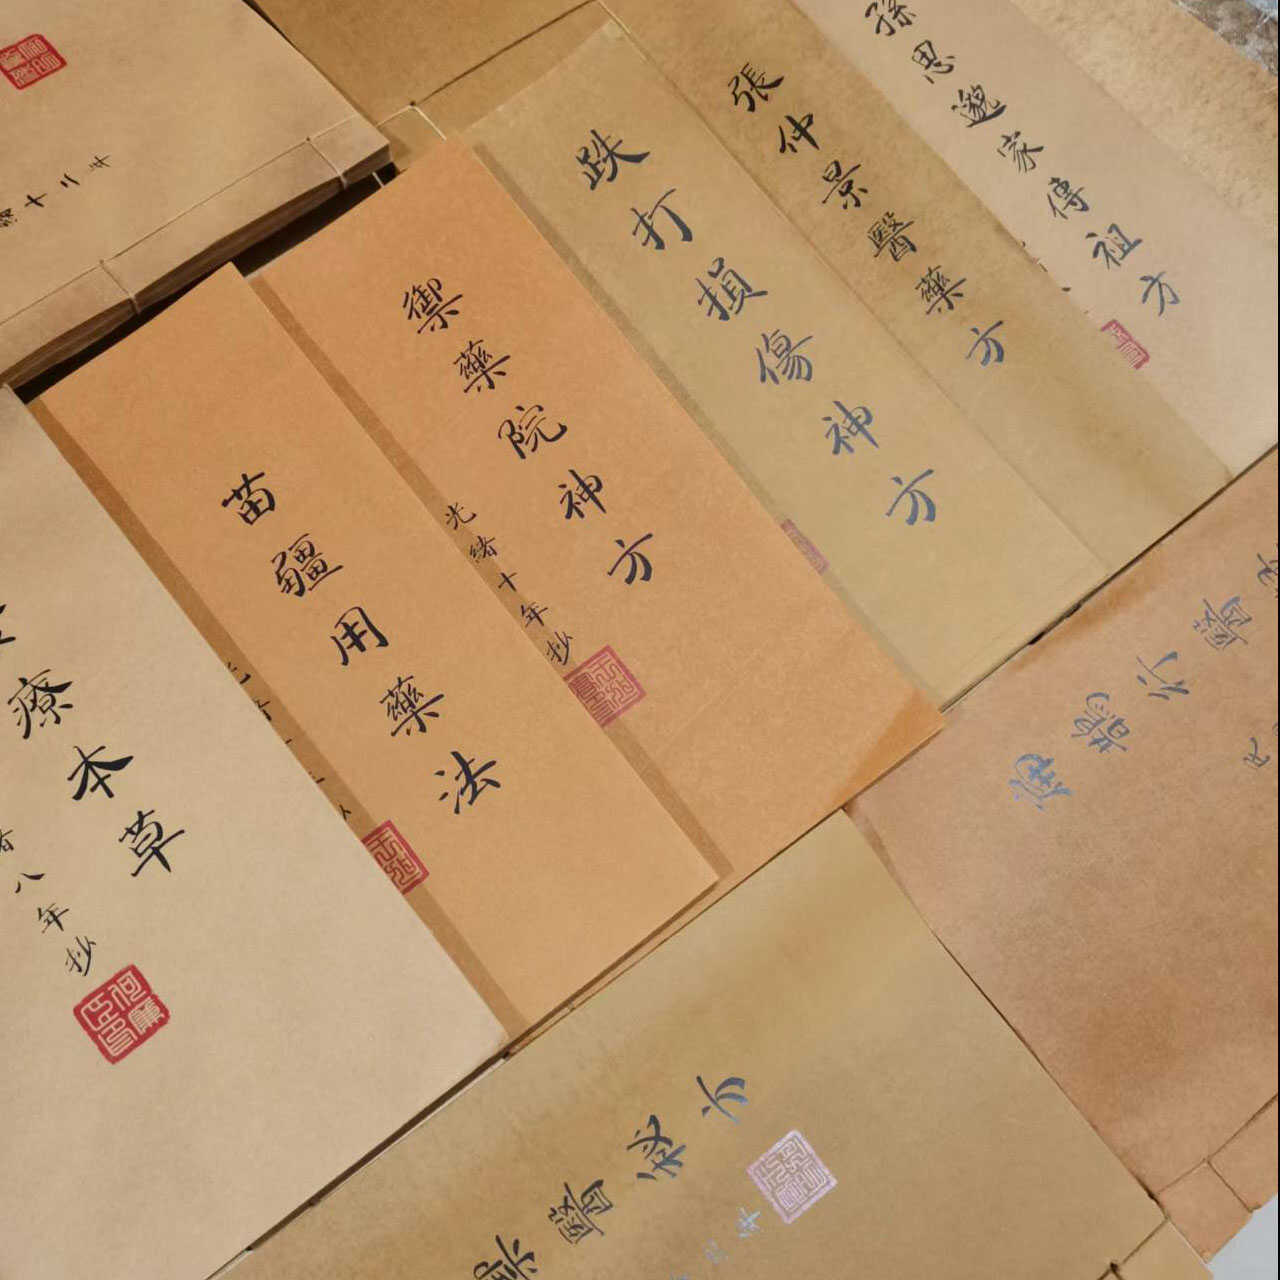 孫思邈家傳祖方
張仲景醫藥方
跌打損傷神方
御藥院神方
光緒十年抄
苗疆用藥法
療本草
八年抄
十二年
醫秘方